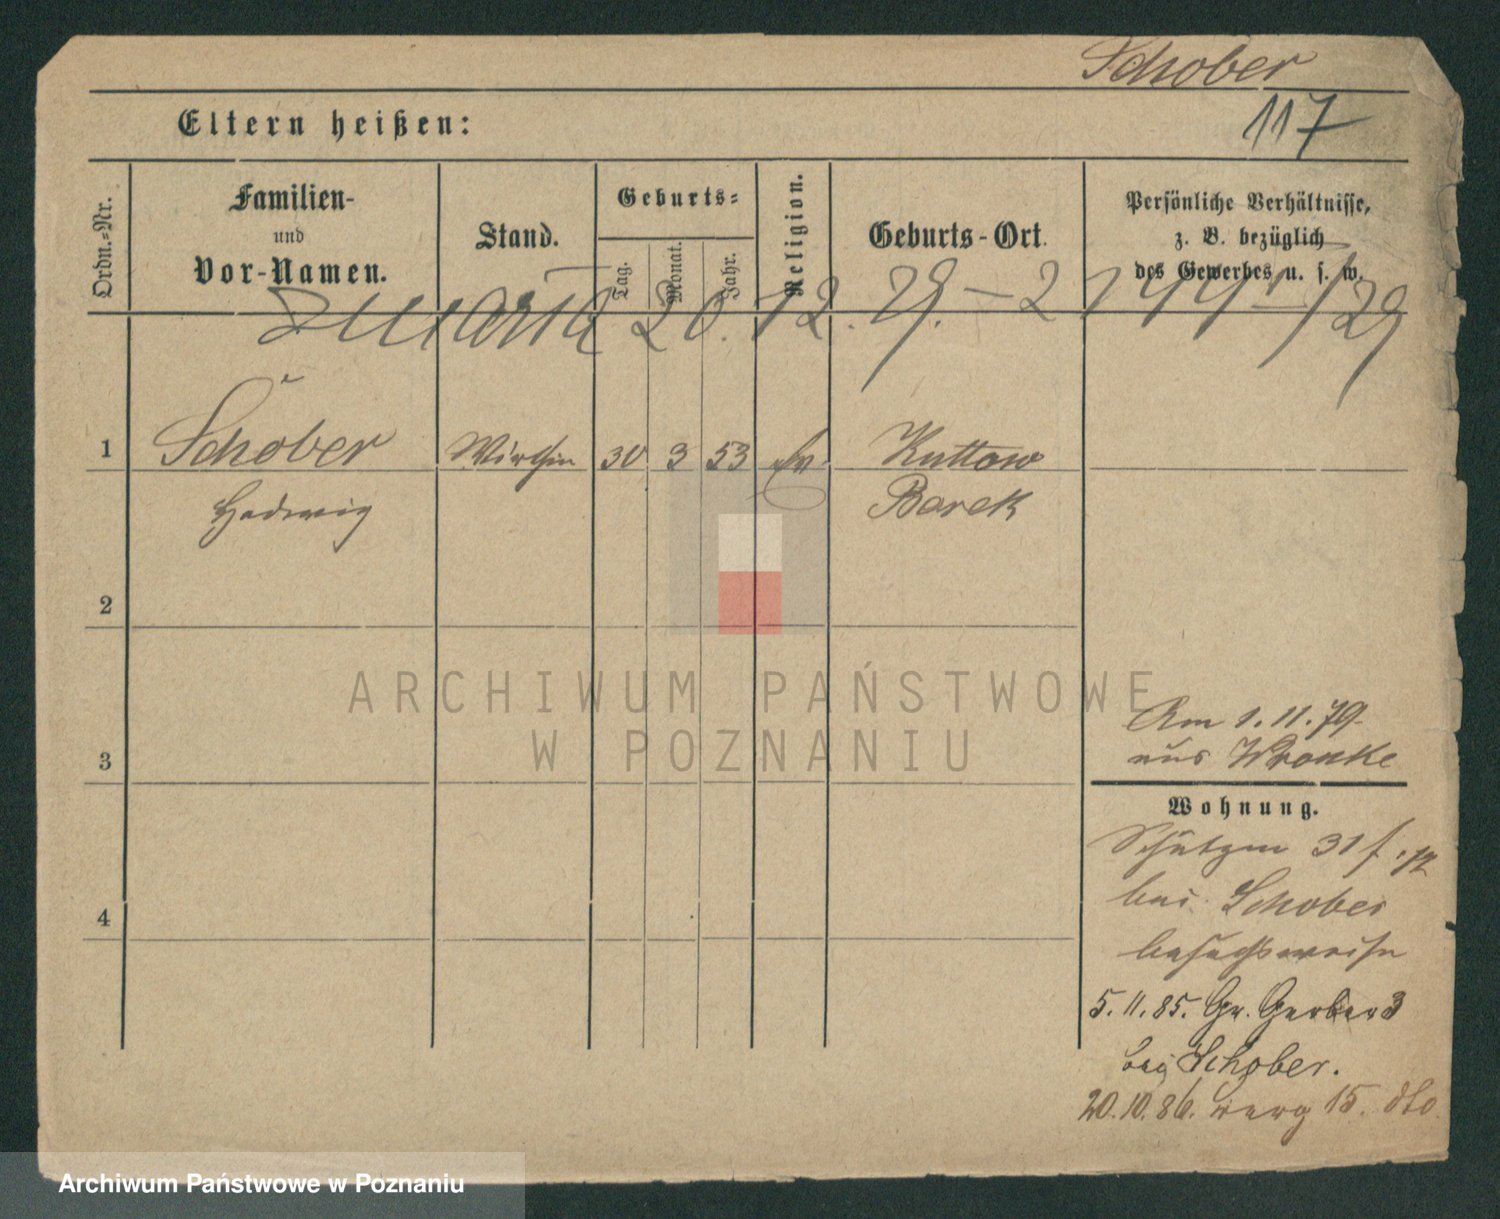 Schober
117
Eltern heißen:
Ordn.=Nr.
Familien-
und
Vor-Namen.
Stand.
Geburts=
Tag.
Monat.
Jahr.
Religion.
Geburts-Ort.
Persönliche Verhältnisse,
z. B. bezüglich
des Gewerbes u. s. w.
zmarła 20. 12. 29. - 2144/29
1
Schober
Wirthin
30
3
53
Ev.
Kuttow
Hedwig
Borek
2
ARCHIWUM PAŃSTWOWE
W POZNANIU
Am 1. 11. 79.
aus Wronke
3
Wohnung.
Schützen 31
bei Schober
besuchsweise
4
5. 11. 85. Gr. Gerber 3
bei Schober.
20. 10. 86. 15. dto
Archiwum Państwowe w Poznaniu